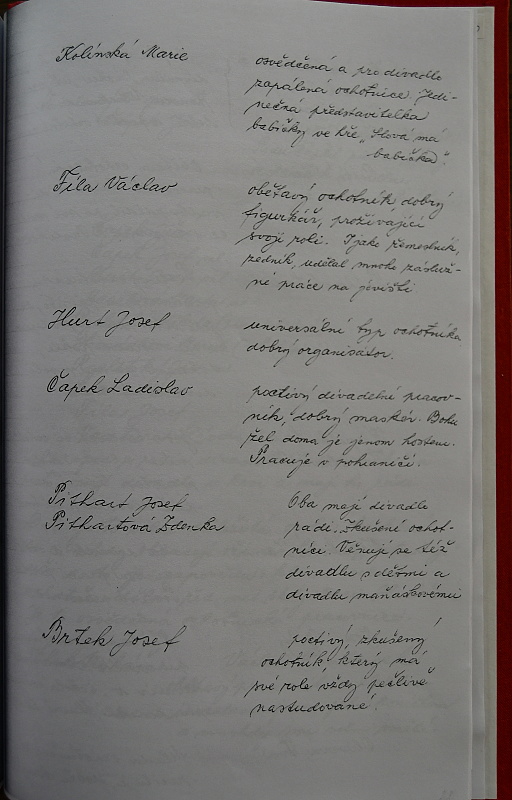 Kolínská Marie
osvědčená a pro divadlo
zapálená ochotnice. Jedi-
nečná představitelka
babičky ve hře „Slová má
babička“.
Fíla Václav
obětavý ochotník, dobrý
figurkář, prožívající
svoji roli. I jako řemeslník,
zedník, udělal mnoho záslùž-
né práce na jevišti.
Hurt Josef
universální typ ochotníka
dobrý organisátor.
Čapek Ladislav
poctivý divadelní pracov-
ník, dobrý maskér. Bohu
žel doma je jenom hostem.
Pracuje v pohraničí.
Pithart Josef
Pithartová Zdenka
Oba mají divadlo
rádi. Zkušení ochot-
níci. Věnují se též
divadlu s dětmi a
divadlu maňáskovému
Brtek Josef
poctivý, zkušený
ochotník, který má
své role vždy pečlivě
nastudované.